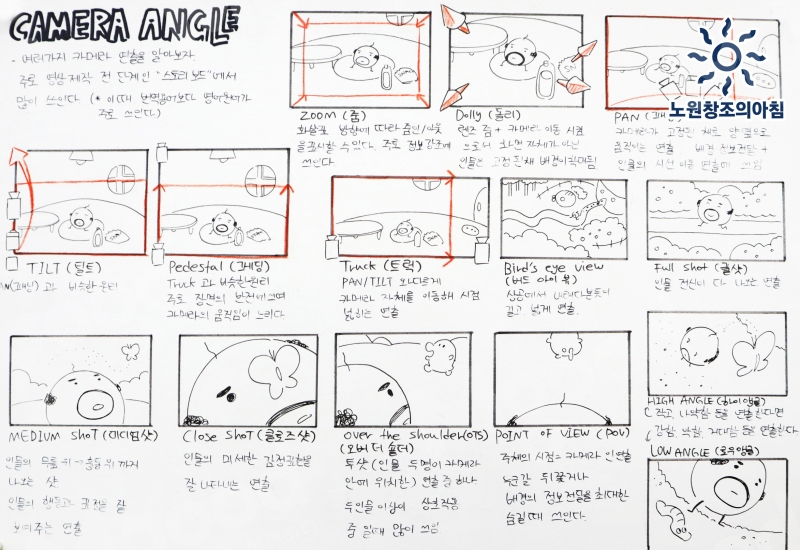 CAMERA ANGLE
- 여러가지 카메라 연출을 알아보자
주로 영상제작 전 단계인 "스토리보드"에서
많이 쓰인다 (* 이때 번역용어보다 영어한어가
주로 쓰인다)
ZOOM (줌)
화살표 방향에 따라 줌인/아웃
을 표시할 수 있다. 주로 정보 강조에
쓰인다
Dolly (돌리)
렌즈 줌 + 카메라 이동 시점
으로서 화면 자체가 아닌
인물은 고정된채 배경이 확대됨
노원창조의아침
PAN
카메라가 고정된 채로 양 옆으로
움직이는 연출 배경 정보전달 +
인물의 시선 이동 연출에 쓰임
TILT (틸트)
비슷한 원리
Pedestal (페데스탈)
Truck 과 비슷한원리
주로 장면의 반전에 쓰며
카메라의 움직임이 느리다
Truck (트럭)
PAN/TILT 와 다르게
카메라 자체를 이동해 시점
넓히는 연출
Bird's eye view
(버드 아이 뷰)
상공에서 내려다본듯이
길고 넓게 연출
Full shot (풀샷)
인물 전신이 다 나오는 연출
MEDIUM SHOT (미디엄샷)
인물의 무릎 위→ 허리 위 까지
나오는 샷
인물의 행동과 표정을 잘
보여주는 연출
Close SHOT (클로즈 샷)
인물의 미세한 감정표현을
잘 나타내는 연출
over the shoulder(OTS)
(오버 더 숄더)
투샷 (인물 두명이 카메라
안에 위치한) 연출 중 하나
두인물 이상이 상호작용
중 일때 많이 쓰임
POINT OF VIEW (POV)
주체의 시점을 카메라 인연출
녹는갈 뒤쫓거나
배경의 정보전달을 최대한
숨길때 쓰인다.
HIGH ANGLE (하이앵글)
작고 나약함 등을 연출한다면
강함, 악함, 거대함 등을 연출한다
LOW ANGLE (로우앵글)